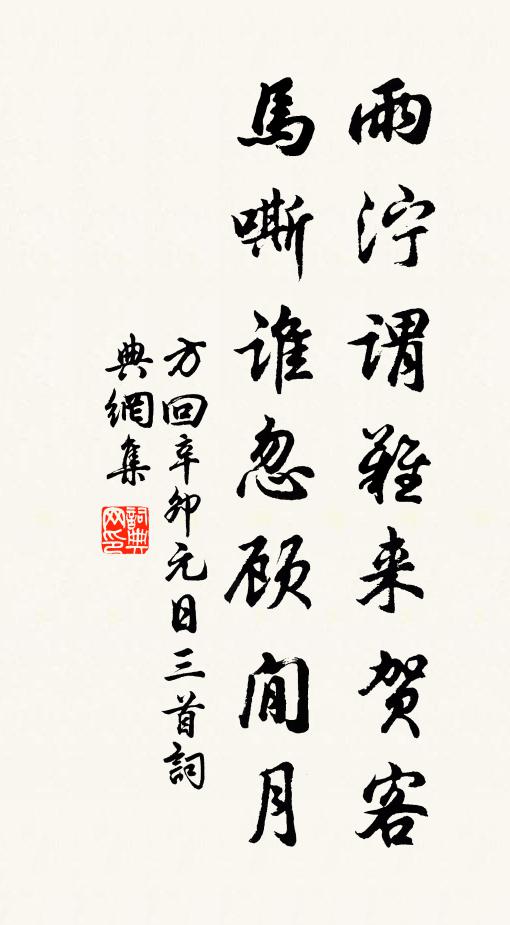 雨泞谓难来贺客
馬嘶谁忽顾閒月
方回辛卯元日三首詞
典網集
詞典
网印